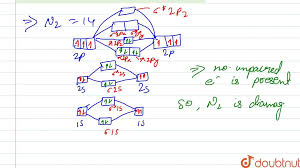 ⇒ N₂ = 14
σ* 2p₂
π2p
π2py
2p
2p
σ*2s
2s
2s
σ2s
σ*1s
1s
1s
σ1s
⇒ no unpaired
e⁻ is present
So, N₂ is diamag
doubtnut